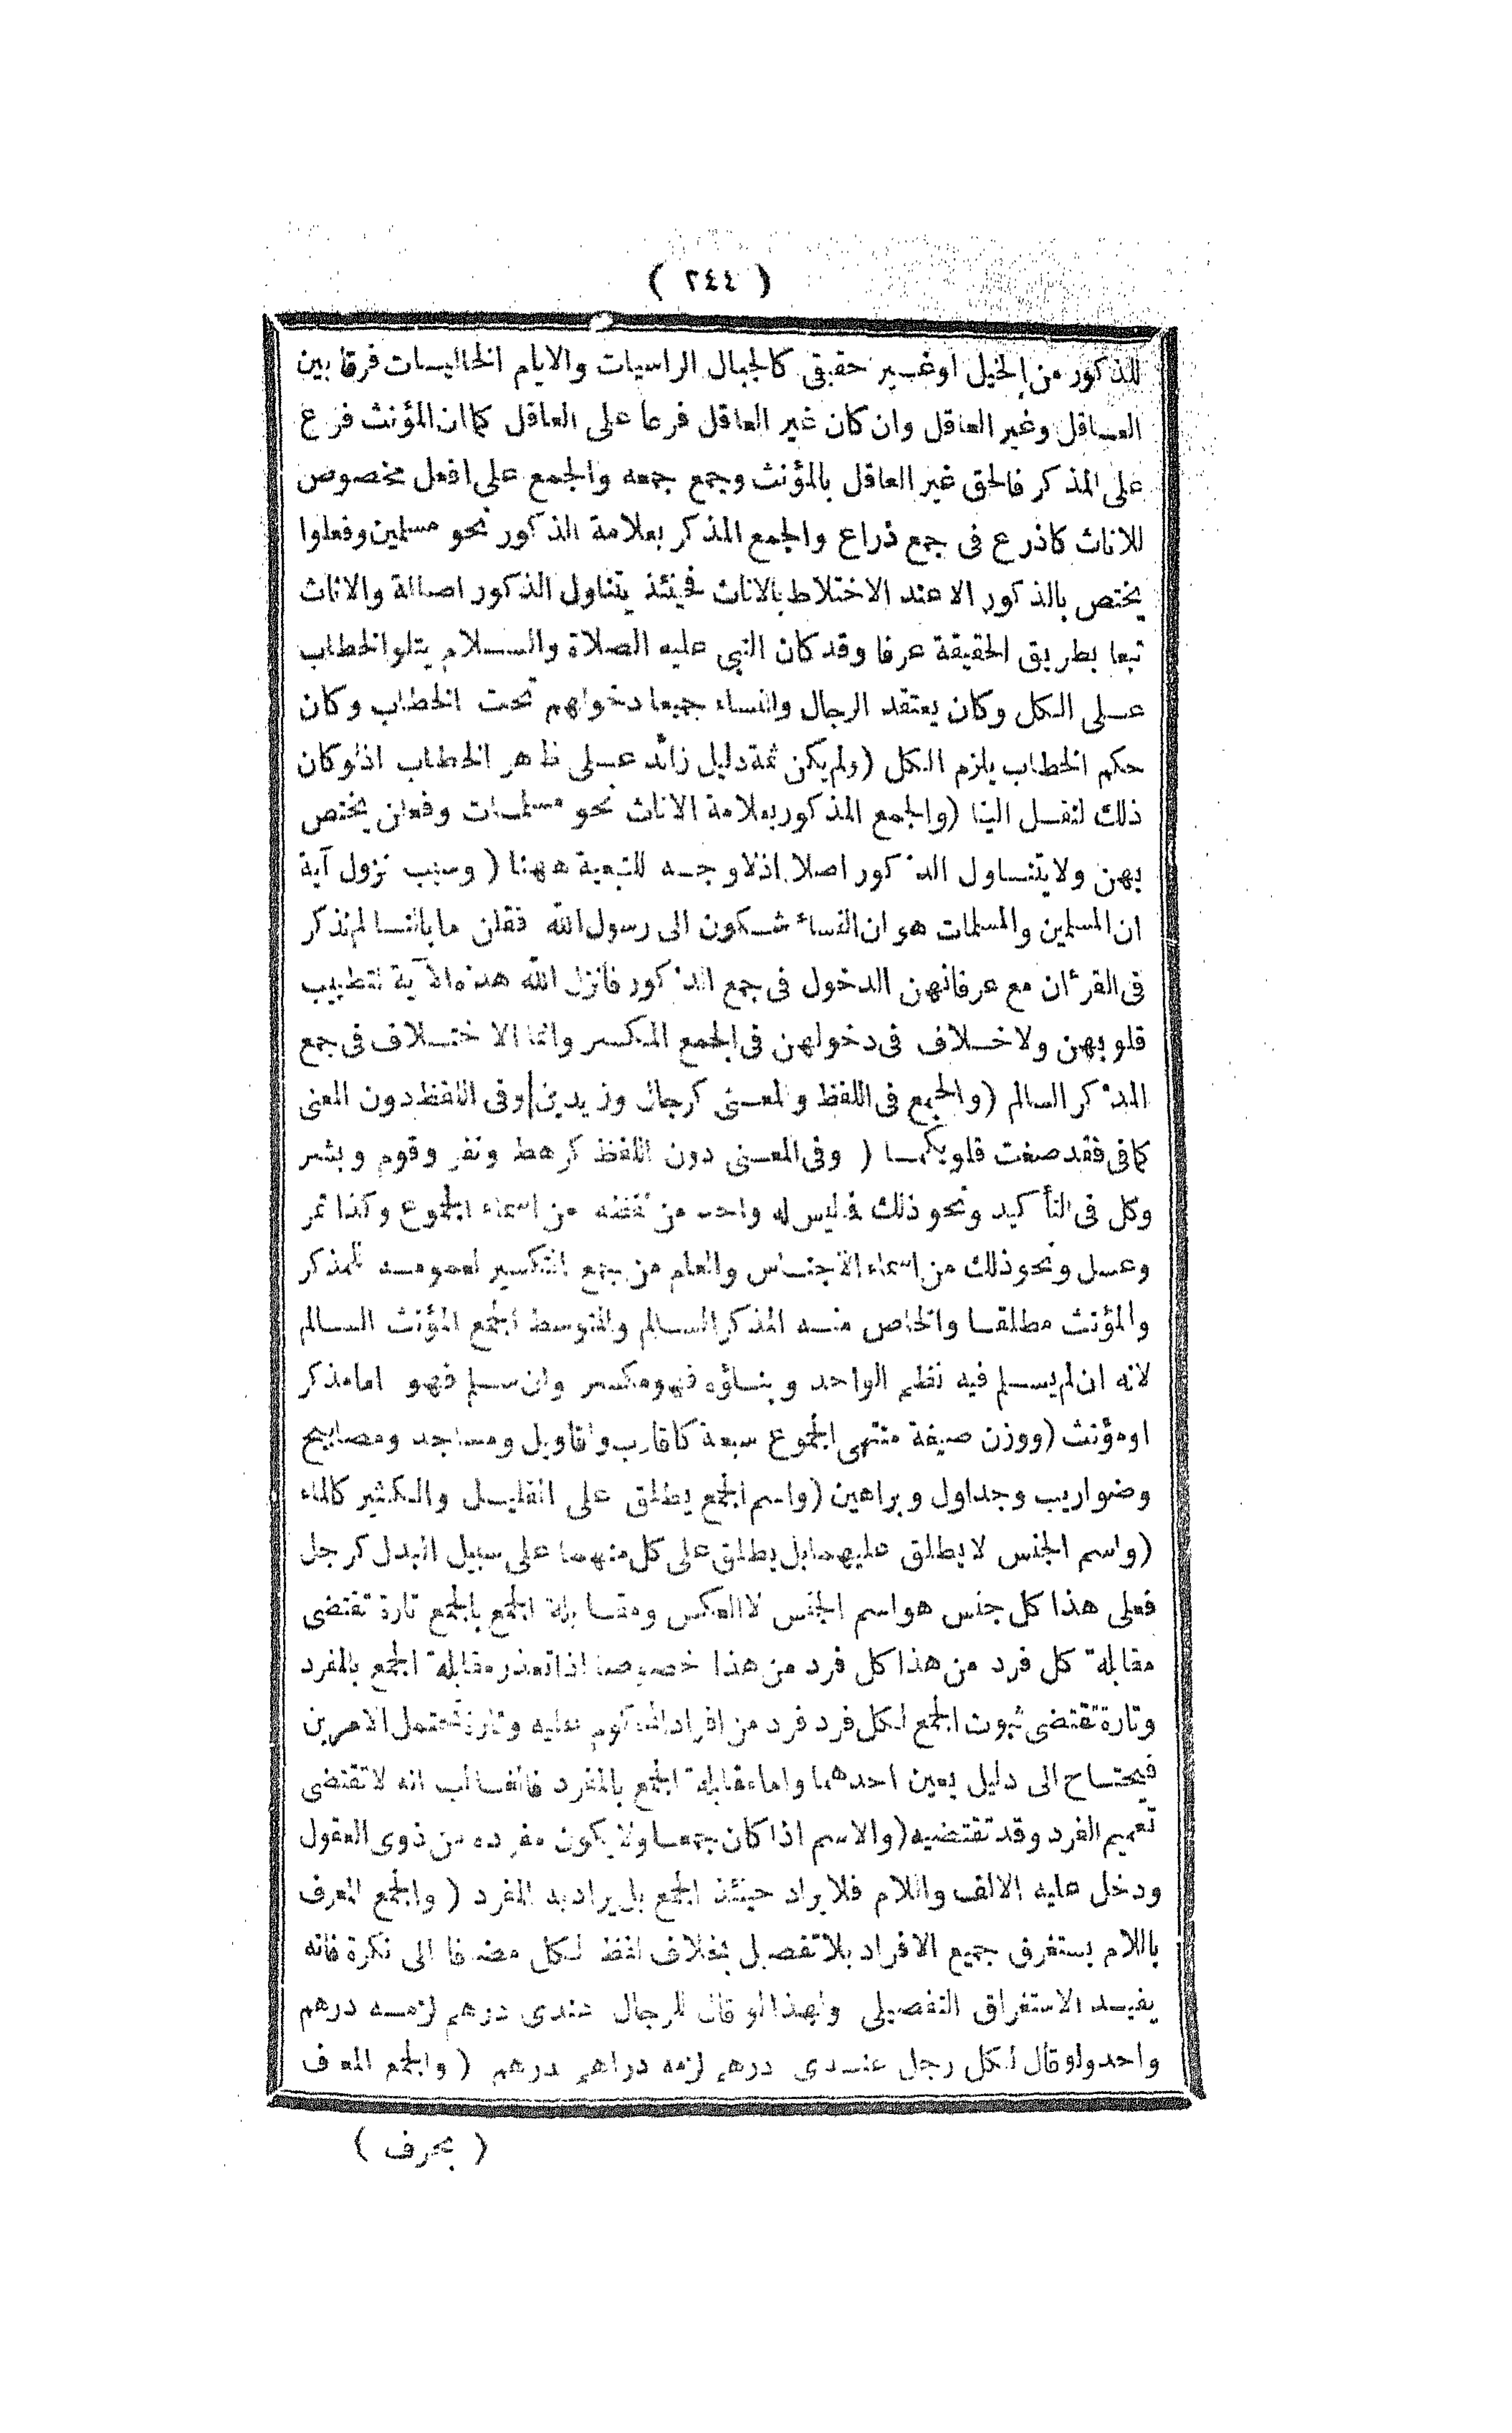 ( ٢٤٤ )
للذكور من الخيل اوغير حقيقى كالجبال الراسيات والايام الخاليات فرقا بين
العاقل وغير العاقل وان كان غير العاقل فرعا على العاقل كما ان المؤنث فرع
على المذكر فالحق غير العاقل بالمؤنث وجمع جمعه والجمع على افعل مخصوص
للاناث كاذرع فى جمع ذراع والجمع المذكر بعلامة الذكور نحو مسلمين وفعلوا
يختص بالذكور الا عند الاختلاط بالاناث فحينئذ يتناول الذكور اصالة والاناث
تبعا بطريق الحقيقة عرفا وقد كان النبى عليه الصلاة والسلام يتلو الخطاب
على الكل وكان يعتقد الرجال والنساء جميعا دخولهم تحت الخطاب وكان
حكم الخطاب يلزم الكل (ولم يكن ثمة دليل زائد على ظاهر الخطاب اذ لو كان
ذلك لنقل الينا (والجمع المذكور بعلامة الاناث نحو مسلمات وفعلن يختص
بهن ولا يتناول الذكور اصلا اذ لا وجه للتبعية ههنا ( وسبب نزول آية
ان المسلمين والمسلمات هو ان النساء شكون الى رسول الله فقلن ما بالنا لم نذكر
فى القرآن مع عرفانهن الدخول فى جمع الذكور فانزل الله هذه الآية لتطييب
قلوبهن ولا خلاف فى دخولهن فى الجمع المكسر وانما الاختلاف فى جمع
المذكر السالم (والجمع فى اللفظ والمعنى كرجال وزيدين وفى اللفظ دون المعنى
كما فى فقد صغت قلوبكما ( وفى المعنى دون اللفظ كرهط ونفر وقوم وبشر
وكل فى التأكيد ونحو ذلك مما ليس له واحد من لفظه من اسماء الجموع وكذا تمر
وعسل ونحو ذلك من اسماء الاجناس والعام من جمع التكسير لعمومه للمذكر
والمؤنث مطلقا والخاص منه المذكر السالم والمتوسط الجمع المؤنث السالم
لانه ان لم يسلم فيه نظم الواحد وبناؤه فهو مكسر وان سلم فهو اما مذكر
او مؤنث (ووزن صيغة منتهى الجموع سبعة كاقارب واقاويل ومساجد ومصابيح
وضواريب وجداول وبراهين (واسم الجمع يطلق على القليل والكثير كالماء
(واسم الجنس لا يطلق عليهما بل يطلق على كل منهما على سبيل البدل كرجل
فعلى هذا كل جنس هو اسم الجنس لا العكس ومقابلة الجمع بالجمع تارة تقتضى
مقابلة كل فرد من هذا كل فرد من هذا خصوصا اذا تعذر مقابلة الجمع بالمفرد
وتارة تقتضى ثبوت الجمع لكل فرد فرد من افراد المحكوم عليه وتارة تحتمل الامرين
فيحتاج الى دليل يعين احدهما واما مقابلة الجمع بالمفرد فالغالب انه لا تقتضى
تعميم الفرد وقد تقتضيه (والاسم اذا كان جمعا ولا يكون مفرده من ذوى العقول
ودخل عليه الالف واللام فلا يراد حينئذ الجمع بل يراد به المفرد ( والجمع المعرف
باللام يستغرق جميع الافراد بلا تفصيل بخلاف لفظ لكل مضافا الى نكرة فانه
يفيد الاستغراق التفصيلى ولهذا لو قال للرجال عندى درهم لزمه درهم
واحد ولو قال لكل رجل عندى درهم لزمه دراهم درهم ( والجمع المعرف
( بحرف )